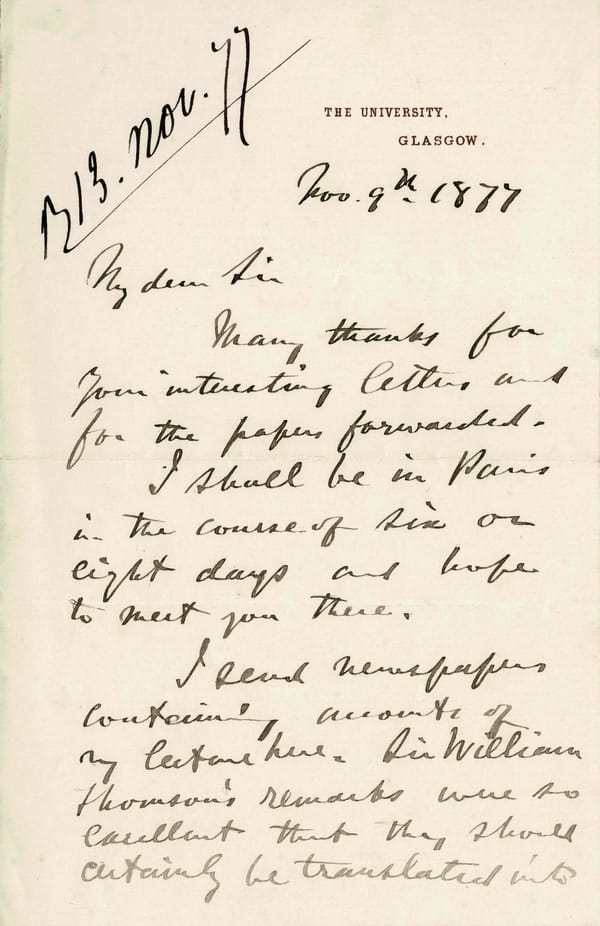 13. Nov. 77
THE UNIVERSITY,
GLASGOW.
Nov. 9th 1877
My dear Sir
Many thanks for
your interesting letters and
for the papers forwarded.
I shall be in Paris
in the course of six or
eight days and hope
to meet you there.
I send newspapers
containing accounts of
my lecture here. Sir William
Thomson's remarks were so
excellent that they should
certainly be translated into